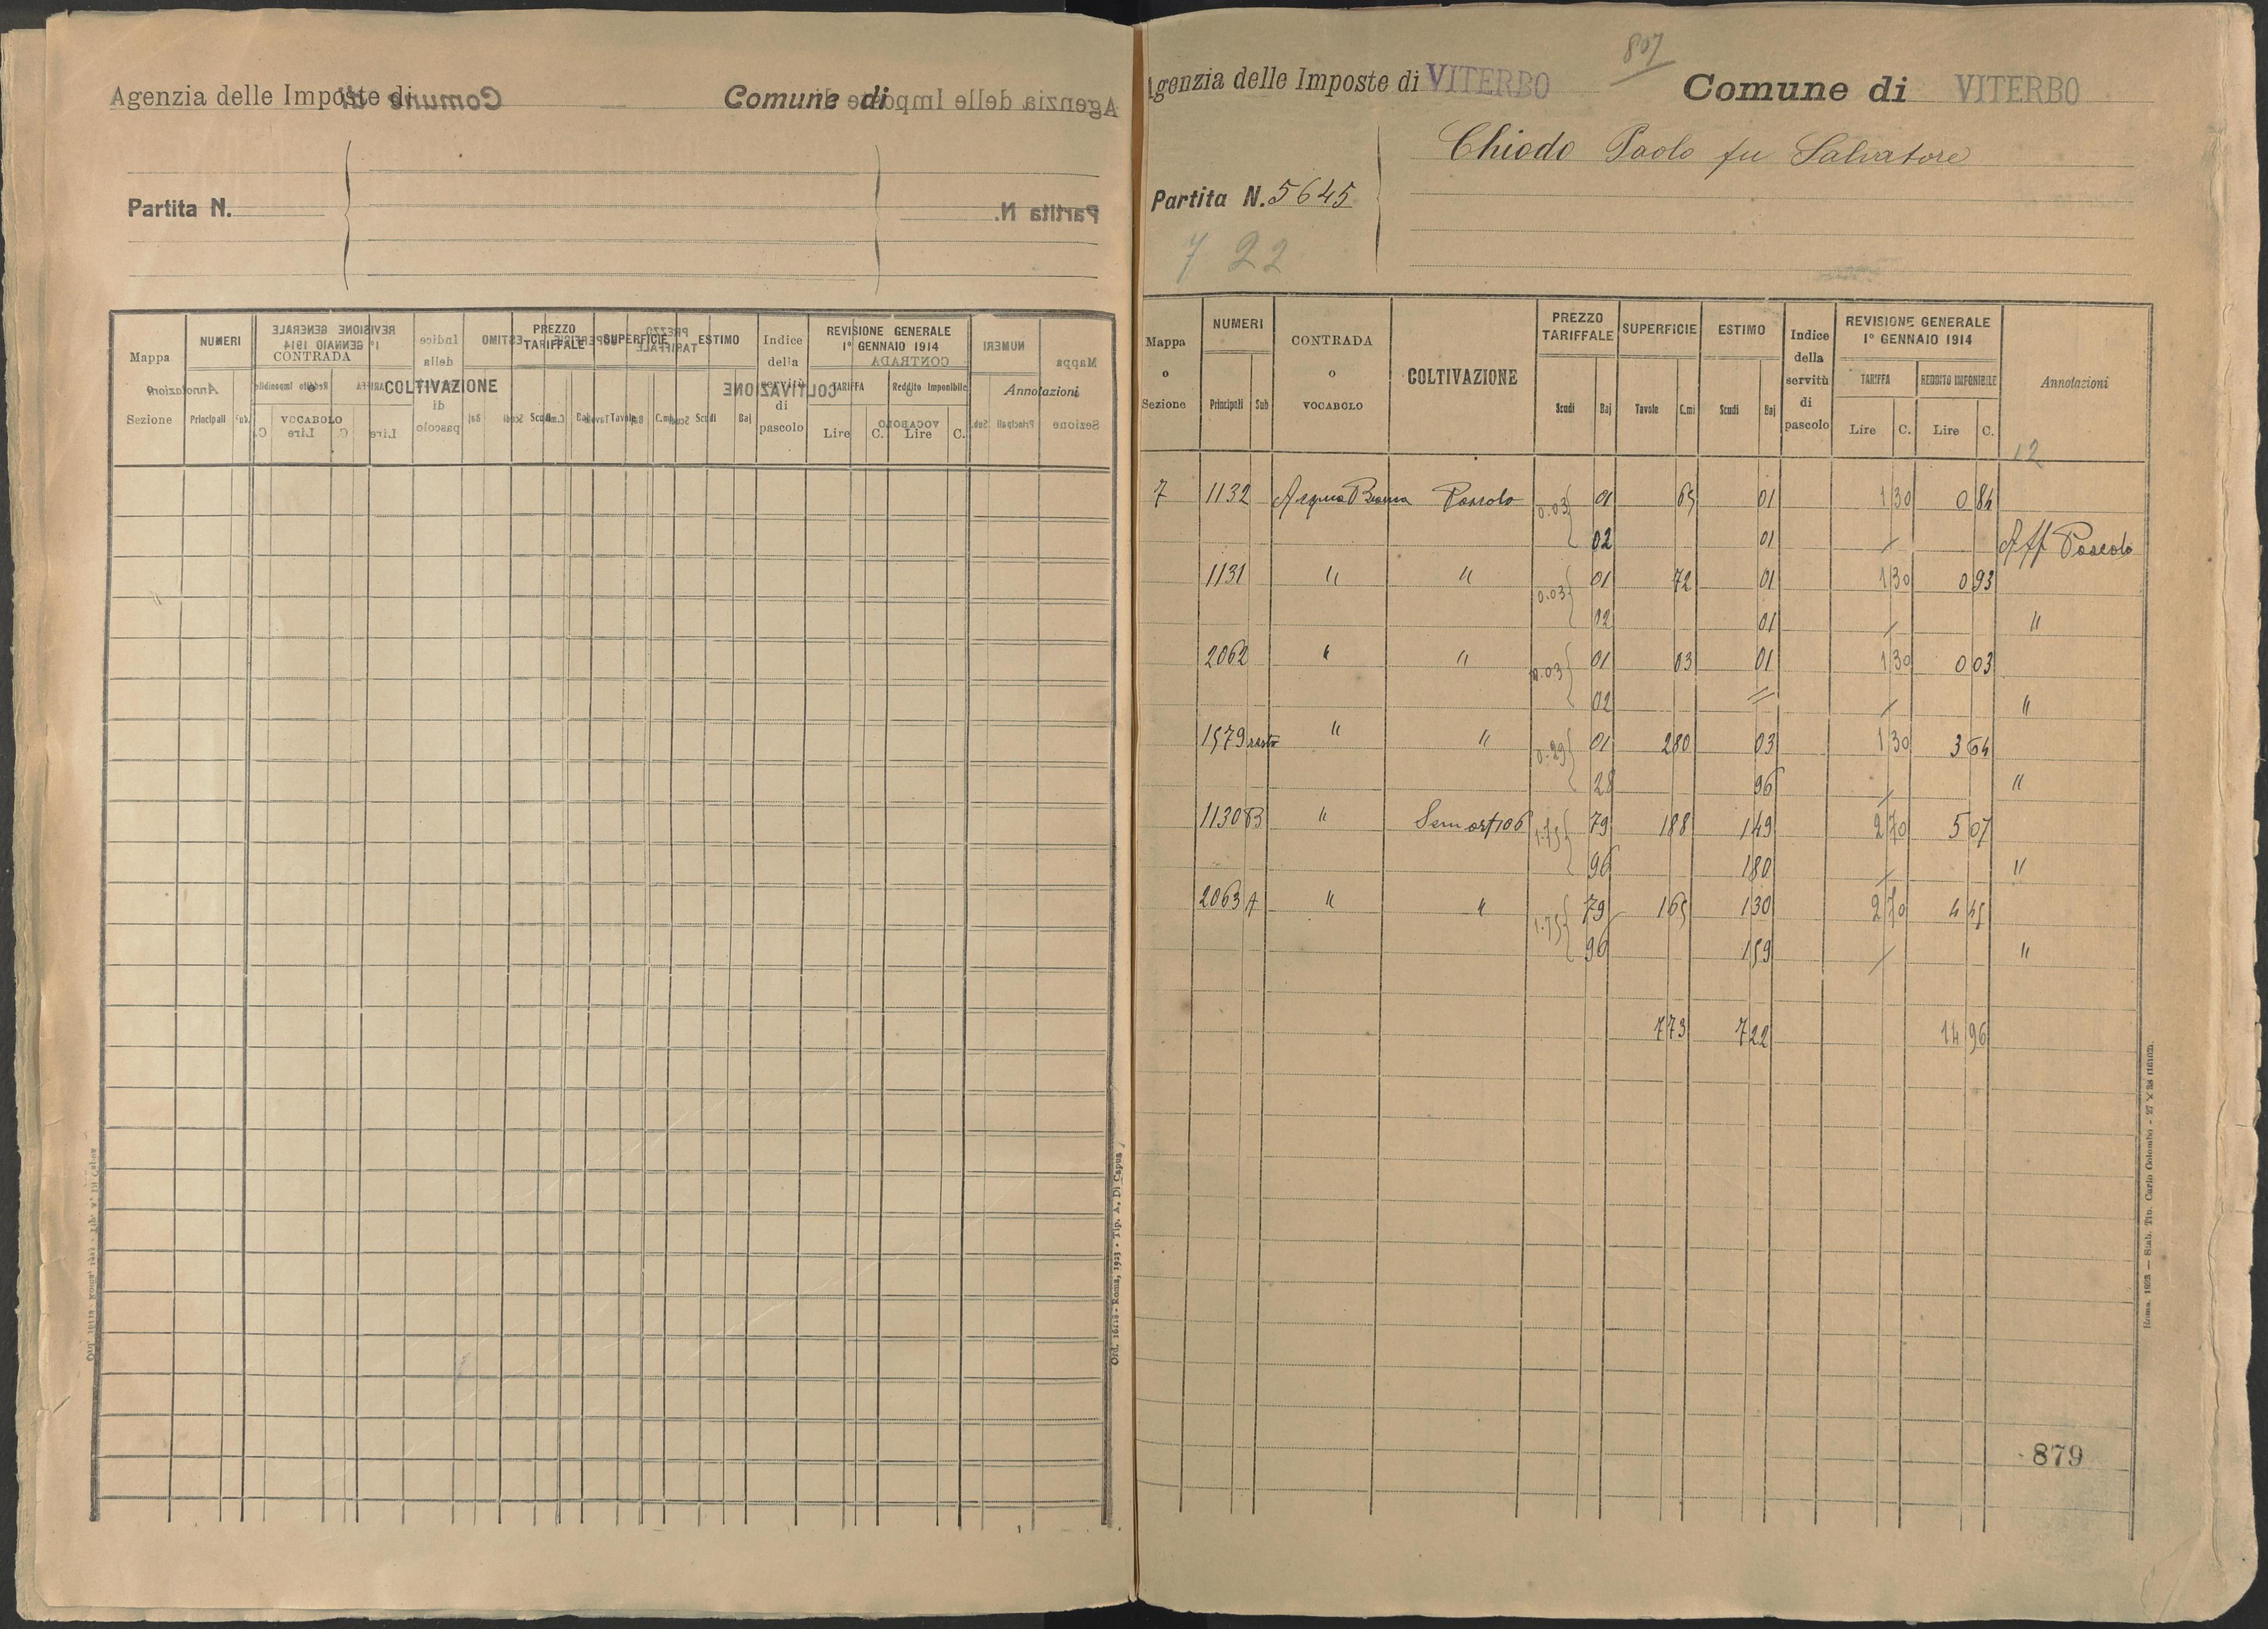 Agenzia delle Imposte di
Comune di
Partita N.
Mappa o Sezione
NUMERI
Principali Sub.
CONTRADA o VOCABOLO
COLTIVAZIONE
PREZZO TARIFFALE
Scudi Baj
SUPERFICIE
Tavole C.mi
ESTIMO
Scudi Baj
Indice della servitù di pascolo
REVISIONE GENERALE 1° GENNAIO 1914
TARIFFA
Lire C.
Reddito Imponibile
Lire C.
Annotazioni
Ord. 16118 - Roma, 1923 - Tip. A. Di Capua
807
Agenzia delle Imposte di VITERBO
Comune di VITERBO
Chiodo Paolo fu Salvatore
Partita N. 5645
722
Mappa o Sezione
NUMERI
Principali Sub
CONTRADA o VOCABOLO
COLTIVAZIONE
PREZZO TARIFFALE
Scudi Baj
SUPERFICIE
Tavole C.mi
ESTIMO
Scudi Baj
Indice della servitù di pascolo
REVISIONE GENERALE 1° GENNAIO 1914
TARIFFA
Lire C.
REDDITO IMPONIBILE
Lire C.
Annotazioni
12
7 1132 Acqua Bianca Pascolo 0.03 01 65 01 1 30 0 84
02 01 / Aff Pascolo
1131 " " 0.03 01 72 01 1 30 0 93
02 01 / "
2062 " " 0.03 01 03 01 1 30 0 03
02 = / "
1579 resto " " 0.29 01 280 03 1 30 3 64
28 96 / "
1130 B " Sem 1.75 79 188 1 49 2 70 5 07
96 1 80 / "
2063 A " " 1.75 79 165 1 30 2 70 4 45
96 1 59 / "
773 7 22 14 96
879
Roma, 1923 — Stab. Tip. Carlo Colombo - 27 X 38